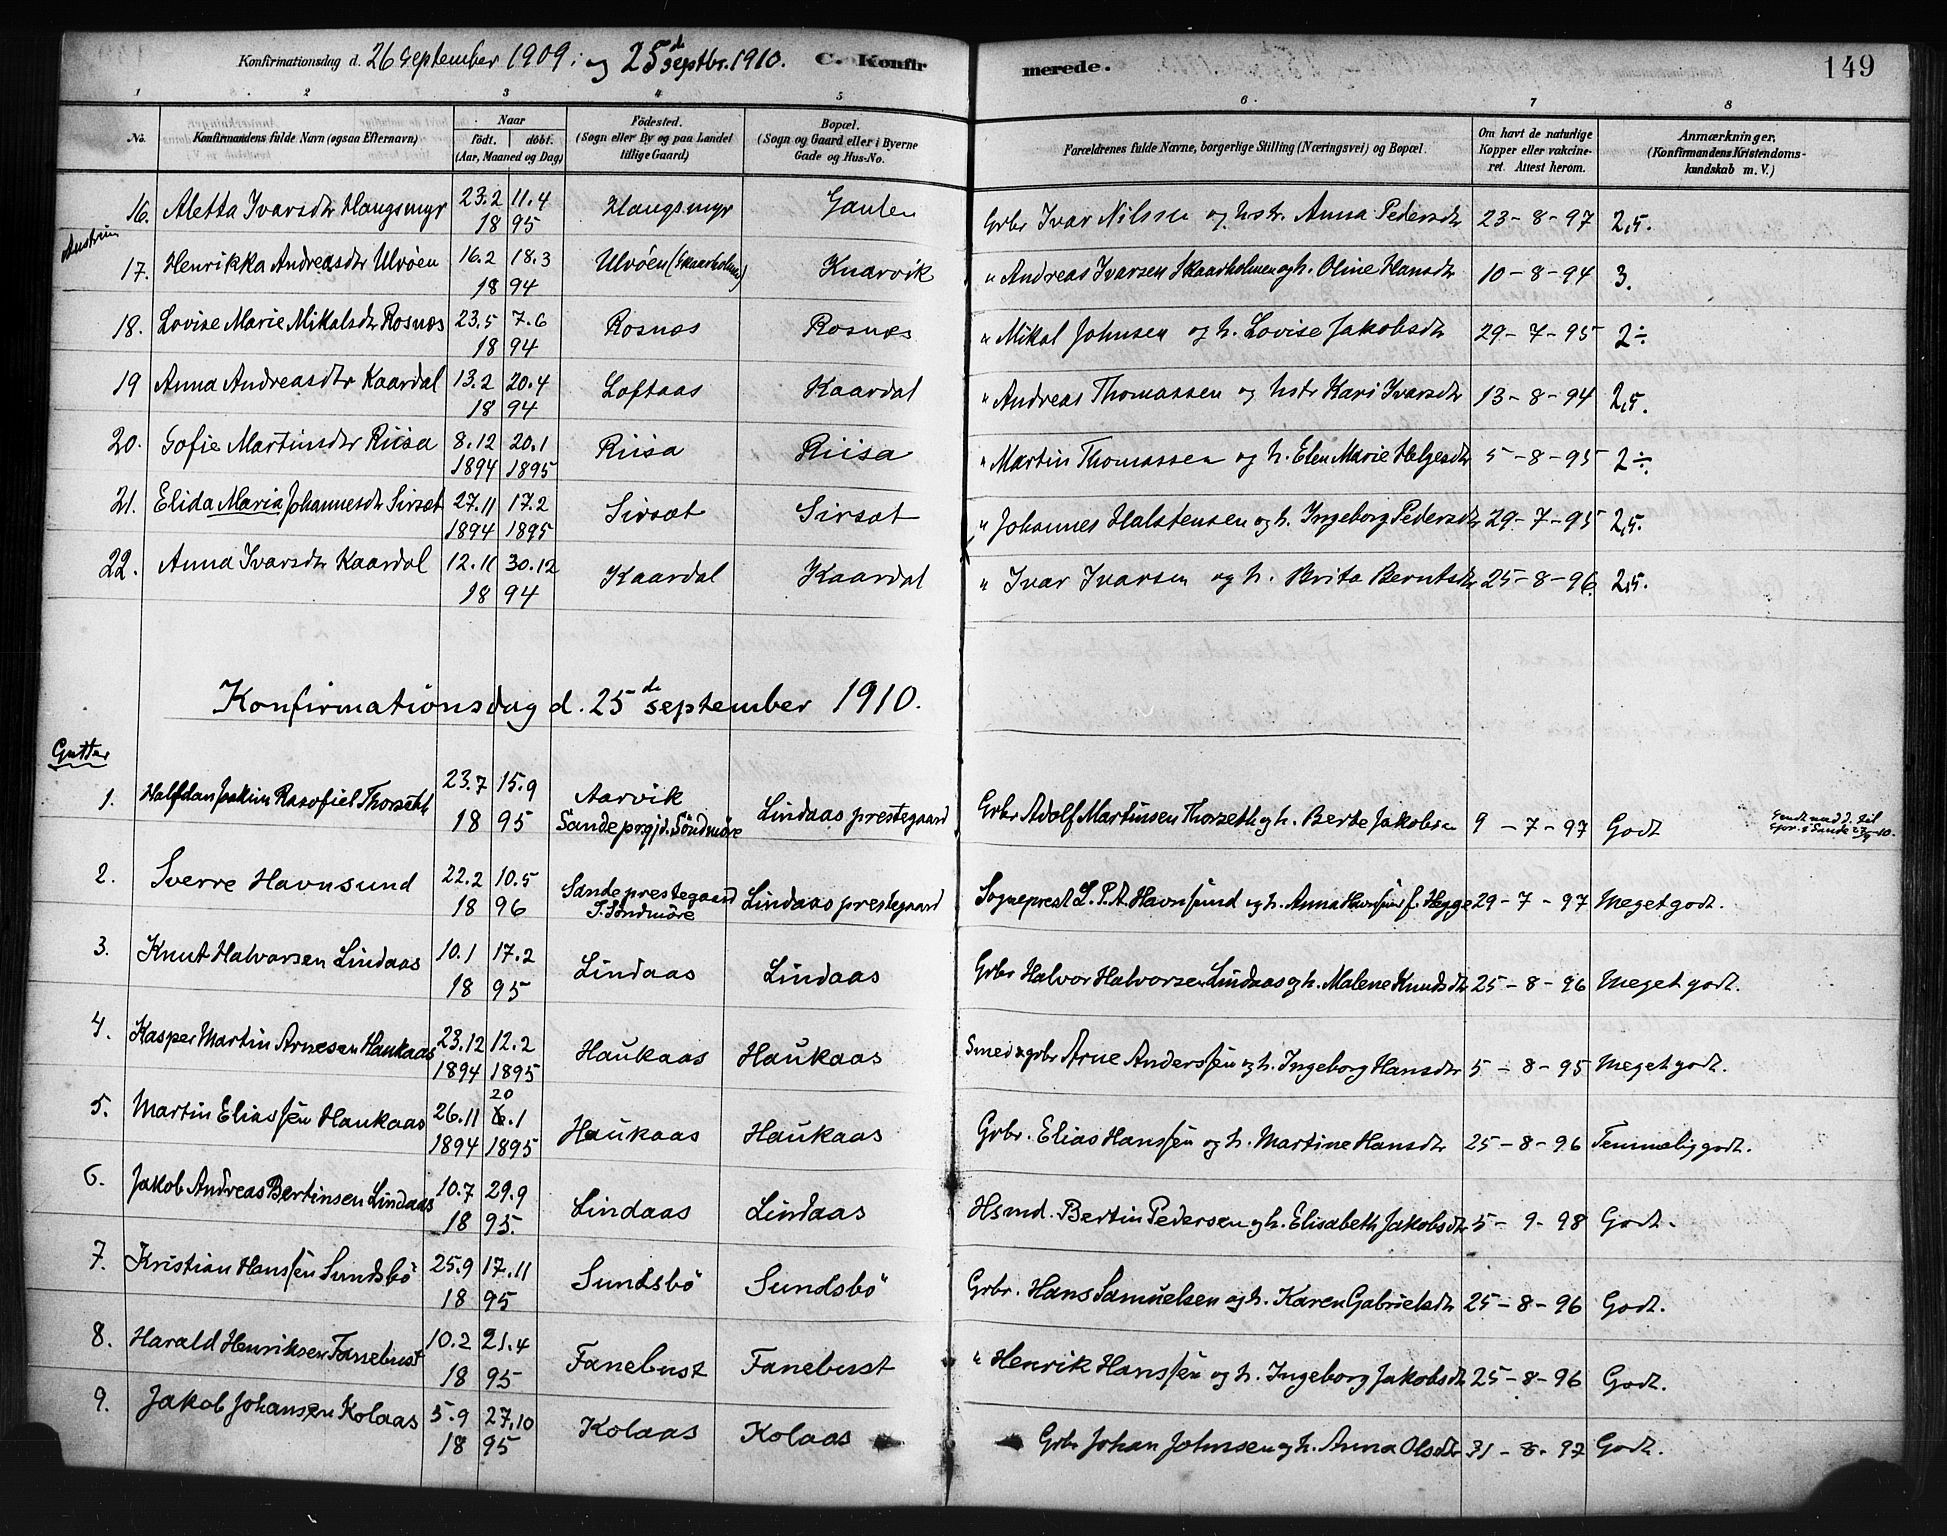 Konfirmationsdag d. 26 September 1909 og 25de septbr. 1910. C. Konfirmerede. 149
1 2 3 4 5 6 7 8
No. Konfirmandens fulde Navn (ogsaa Efternavn) Naar født. døbt. (Aar, Maaned og Dag) Fødested. (Sogn eller By og paa Landet tillige Gaard) Bopæl. (Sogn og Gaard eller i Byerne Gade og Hus-No. Forældrenes fulde Navne, borgerlige Stilling (Næringsvei) og Bopæl. Om havt de naturlige Kopper eller vaccineret. Attest herom. Anmærkninger, (Konfirmandens Kristendomskundskab m. V.)
16. Aletta Ivarsdtr Haugsmyr 23.2 11.4 1895 Haugsmyr Gaulen Grbr Ivar Nilssen og hstr. Anna Pedersdtr 23-8-97 2,5.
Austrim
17. Henrikka Andreasdtr Ulvöen 16.2 18.3 1894 Ulvöen (Skaarholmen) Knarvik " Andreas Ivarsen Skaarholmen og h. Oline Hansdtr 10-8-94 3.
18. Lovise Marie Mikalsdtr Rosnæs 23.5 7.6 1894 Rosnæs Rosnæs " Mikal Johnsen og h. Lovise Jakobsdtr 29-7-95 2÷
19 Anna Andreasdtr Kaardal 13.2 20.4 1894 Loftaas Kaardal " Andreas Thomassen og hstr Kari Ivarsdtr 13-8-94 2,5.
20. Sofie Martinsdtr Riisa 8.12 1894 20.1 1895 Riisa Riisa " Martin Thomassen og h. Elen Marie Helgesdtr 5-8-95 2÷
21. Elida Maria Johannesdtr Sirsæt 27.11 1894 17.2 1895 Sirsæt Sirsæt " Johannes Halstensen og h. Ingeborg Pedersdtr 29-7-95 2,5.
22. Anna Ivarsdtr Kaardal 12.11 30.12 1894 Kaardal Kaardal " Ivar Ivarsen og h. Brita Berntsdtr 25-8-96. 2,5.
Konfirmationsdag d. 25de september 1910.
Gutter
1. Halfdan Joakim Rasofiel Thorseth 23.7 15.9 1895 Aarvik Sande prgjd. Söndmöre Lindaas prestegaard Grbr Adolf Martinsen Thorseth og h. Berte Jakobs 9-7-97 Godt
2. Sverre Havnsund 22.2 10.5 1896 Sande prestegaard S. Söndmöre Lindaas prestegaard Sogneprest L. P. A. Havnsund og h. Anna Havnsund f. Hegge 29-7-97 Meget godt.
3. Knut Halvorsen Lindaas 10.1 17.2 1895 Lindaas Lindaas Grbr Halvor Halvorsen Lindaas og h. Malene Knudsdtr 25-8-96 Meget godt.
4. Kasper Martin Arnesen Haukaas 23.12 1894 12.2 1895 Haukaas Haukaas Smed & grbr Arne Anderssen og h. Ingeborg Hansdtr 5-8-95 Meget godt.
5. Martin Eliassen Haukaas 26.11 1894 20 6.1 1895 Haukaas Haukaas Grbr. Elias Hanssen og h. Martine Hansdtr 25-8-96 Temmelig godt.
6. Jakob Andreas Bertinsen Lindaas 10.7 29.9 1895. Lindaas Lindaas Hsmd. Bertin Pedersen og h. Elisabeth Jakobsdtr 5-9-98 Godt.
7. Kristian Hanssen Sundsbö 25.9 17.11 1895 Sundsbö Sundsbö Grbr. Hans Samuelsen og h. Karen Gabrielsdtr 25-8-96 Godt.
8. Harald Henriksen Fanebust 10.2 21.4 1895 Fanebust Fanebust " Henrik Hanssen og h. Ingeborg Jakobsdtr 25-8-96 Godt.
9. Jakob Johansen Kolaas 5.9 27.10 1895 Kolaas Kolaas Grbr Johan Johnsen og h. Anna Olsdtr 31-8-97 Godt.